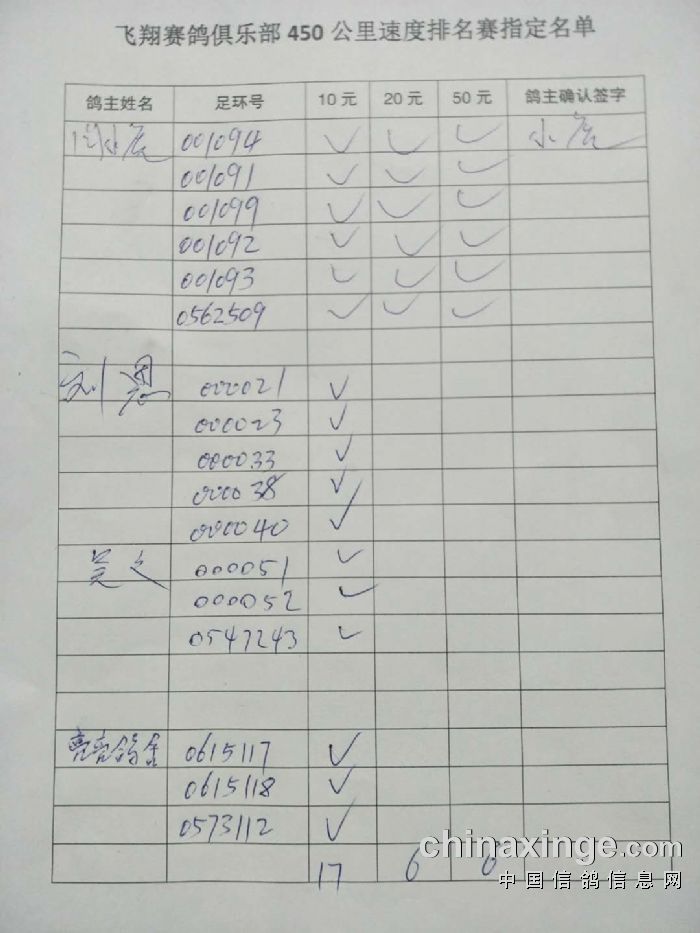 飞翔赛鸽俱乐部 450 公里速度排名赛指定名单
鸽主姓名 足环号 10 元 20 元 50 元 鸽主确认签字
001094 ✓ ✓ ✓
001091 ✓ ✓ ✓
001099 ✓ ✓ ✓
001092 ✓ ✓ ✓
001093 ✓ ✓ ✓
0562509 ✓ ✓ ✓
刘恩 000021 ✓
000023 ✓
000033 ✓
000038 ✓
000040 ✓
000051 ✓
000052 ✓
0547243 ✓
亮亮鸽舍 0615117 ✓
0615118 ✓
0573112 ✓
17 6 6
chinaxinge.com
中国信鸽信息网